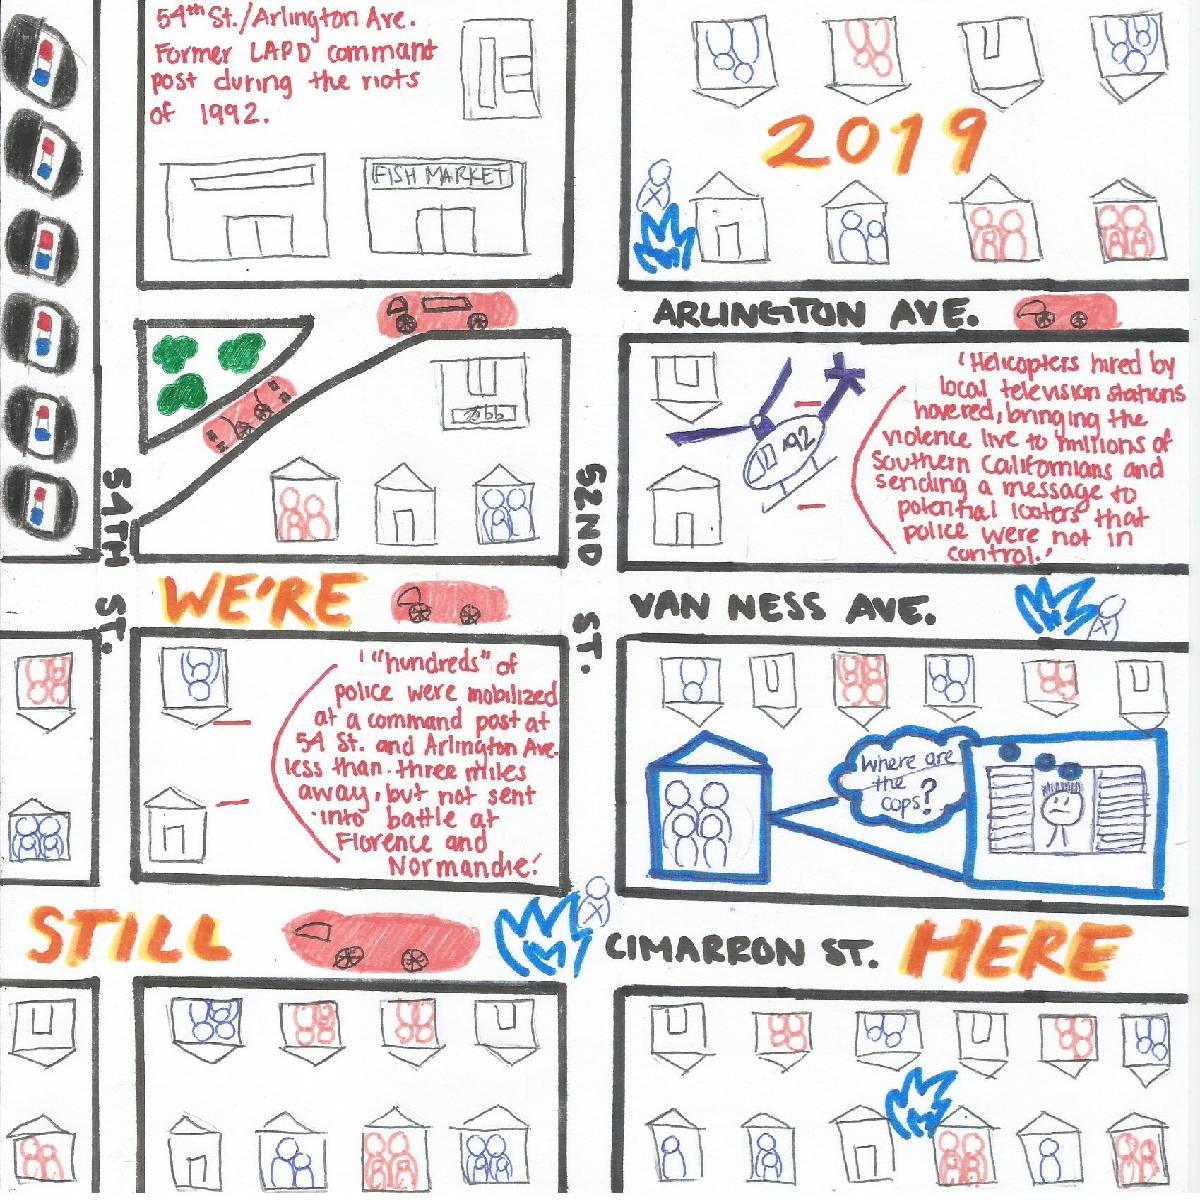 54th St./Arlington Ave.
Former LAPD command
post during the riots
of 1992.
FISH MARKET
2019
ARLINGTON AVE.
'Helicopters hired by
local television stations
hovered, bringing the
violence live to millions of
Southern Californians and
sending a message to
potential looters that
police were not in
control.'
'92
54TH ST.
52ND ST.
WE'RE
VAN NESS AVE.
'"hundreds" of
police were mobilized
at a command post at
54 St. and Arlington Ave.
less than three miles
away, but not sent
into battle at
Florence and
Normandie.'
Where are
the
cops?
STILL
CIMARRON ST.
HERE